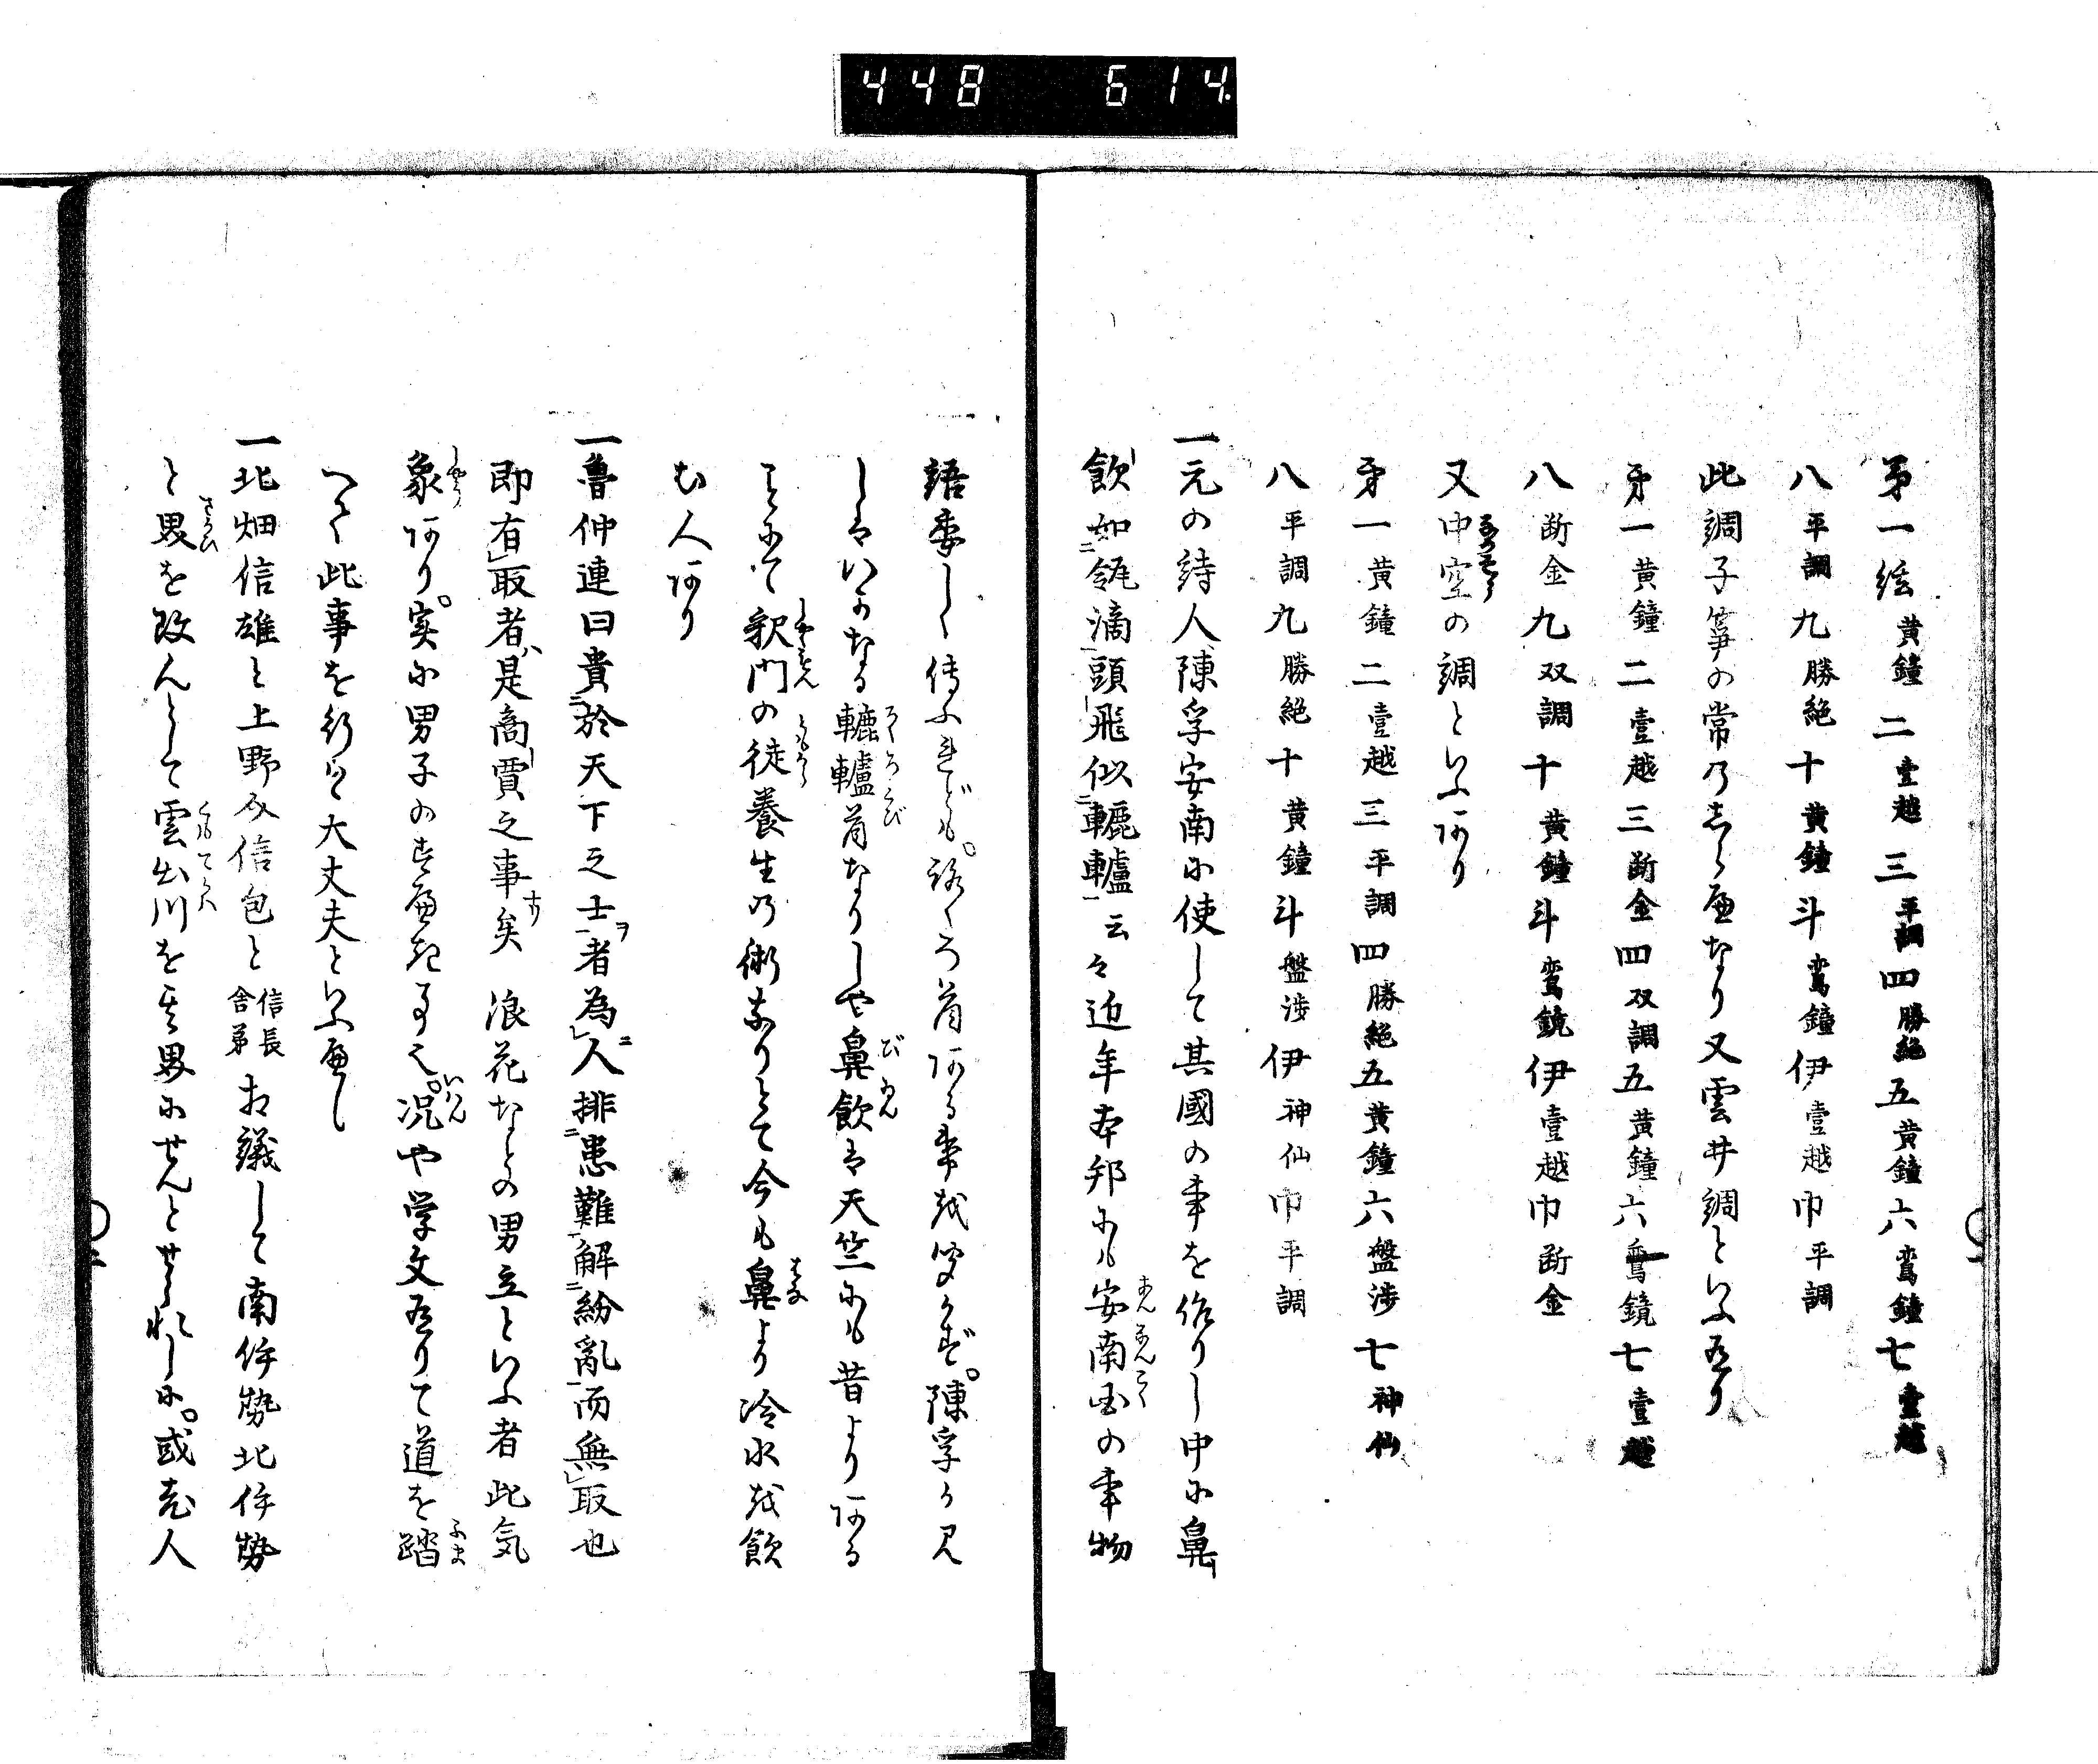 448 614
第一絃黄鐘二壹越三平調四勝絶五黄鐘六鸞鐘七壹越
八平調九勝絶十黄鐘斗鸞鐘伊壹越巾平調
此調子箏の常のしらへなり又雲井調といふ有り
第一黄鐘二壹越三断金四双調五黄鐘六鸞鏡七壹越
八断金九双調十黄鐘斗鸞鏡伊壹越巾断金
又中空の調といふあり
第一黄鐘二壹越三平調四勝絶五黄鐘六盤渉七神仙
八平調九勝絶十黄鐘斗盤渉伊神仙巾平調
一元の詩人陳孚安南に使して其國の事を作りし中に鼻
飲如瓴滴頭飛似轆轤云々近年本邦にも安南国の事物
語委しく傳ふれども。ろくろ首ある事を聞かず。陳孚か見
しはいかなる轆轤首なりしや鼻飲は天竺にも昔よりある
ことにて釈門の徒養生の術なりとて今も鼻より冷水を飲
む人あり
一魯仲連曰貴於天下之士者為人排患難解紛亂而無取也
即有取者是商賈之事矣 浪花なとの男立といふ者此気
象あり。実に男子のすへき事也。况や学文有りて道を踏
へく此事を行はゝ大丈夫といふへし
一北畑信雄と上野介信包と信長舎弟相議して南伊勢北伊勢
と界を改んとして雲出川を其界にせんとせられしに。或老人